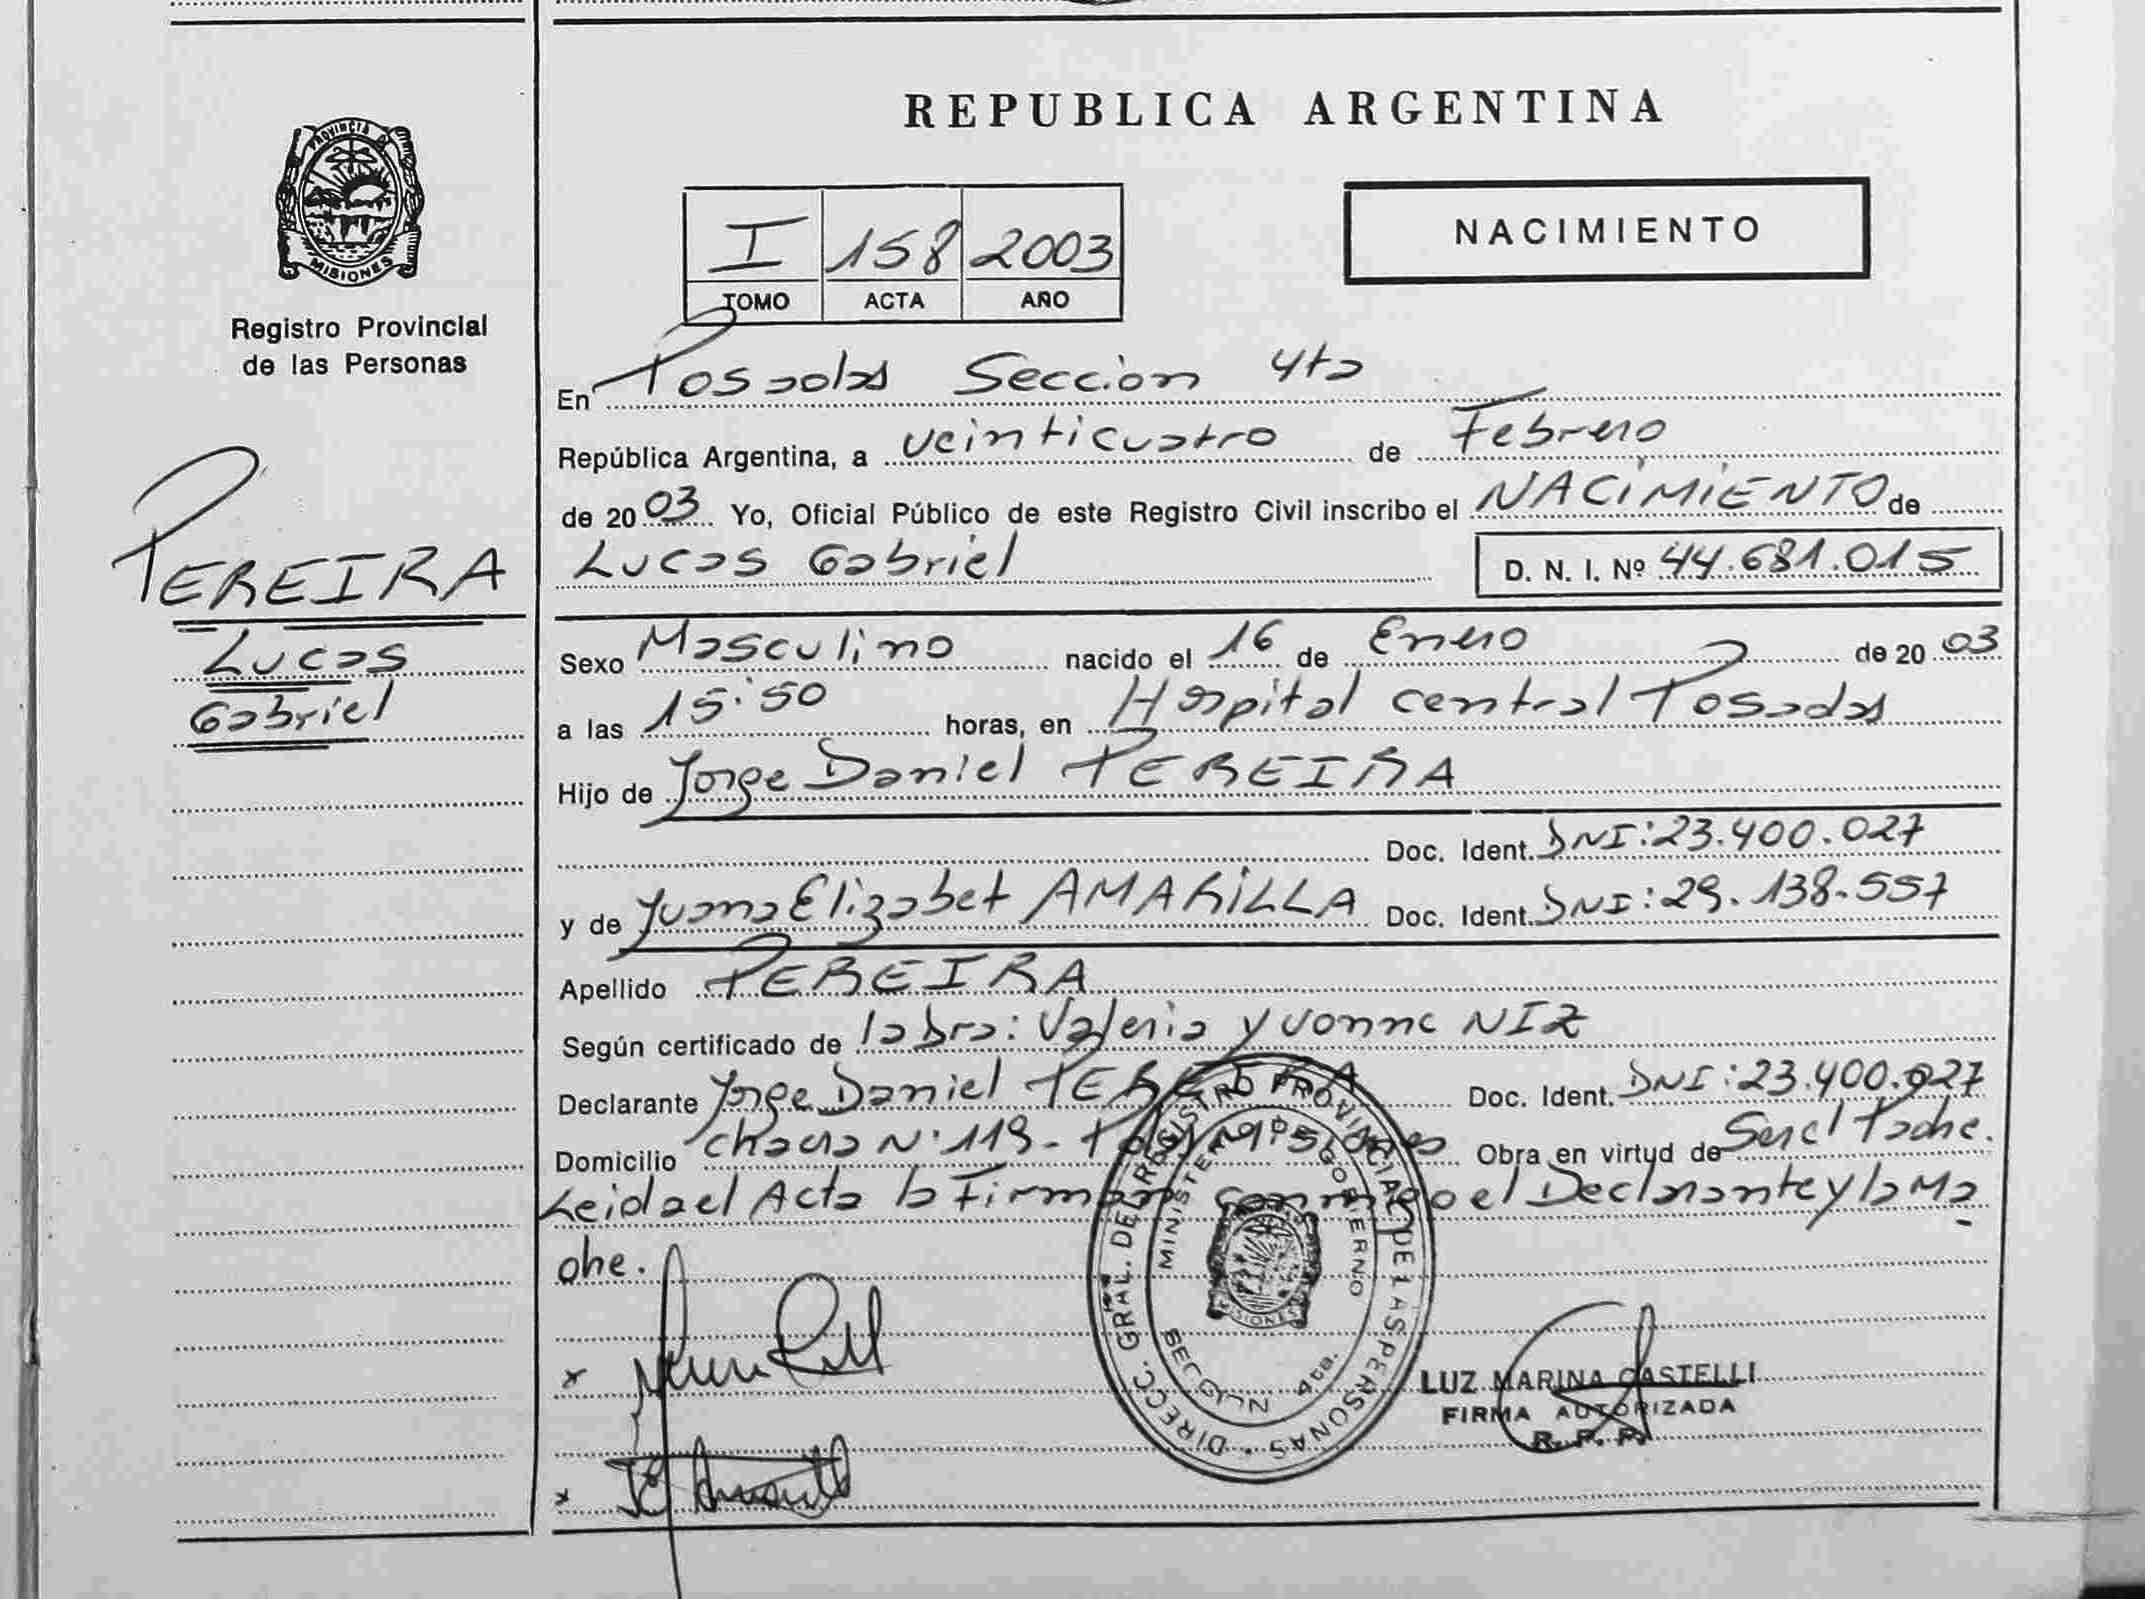 PROVINCIA DE
MISIONES
Registro Provincial
de las Personas
PEREIRA
Lucas
Gabriel
REPUBLICA ARGENTINA
I 158 2003
TOMO ACTA AÑO
NACIMIENTO
En Posadas Seccion 4ta
República Argentina, a veinticuatro de Febrero
de 2003 Yo, Oficial Público de este Registro Civil inscribo el NACIMIENTO de
Lucas Gabriel D. N. I. Nº 44.681.015
Sexo Masculino nacido el 16 de Enero de 2003
a las 15:50 horas, en Hospital central Posadas
Hijo de Jorge Daniel PEREIRA
Doc. Ident. DNI:23.400.027
y de Yuana Elizabet AMARILLA Doc. Ident. DNI:29.138.557
Apellido PEREIRA
Según certificado de la Dra: Valeria Yvonne NIZ
Declarante Jorge Daniel PEREIRA Doc. Ident. DNI:23.400.027
Domicilio chacra Nº 119- Obra en virtud de Ser el Padre.
Leida el Acta la Firman conmigo el Declarante y la Ma
dre.
DIRECC. GRAL. DEL REGISTRO PROVINCIAL DE LAS PERSONAS
MINISTERIO DE GOBIERNO
SECCION 4ta.
MISIONES
LUZ MARINA CASTELLI
FIRMA AUTORIZADA
R. P. P.